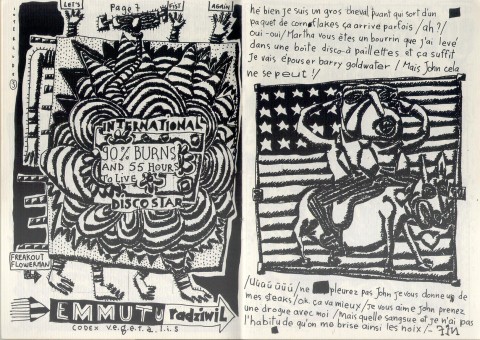 LET'S
Page 7
FIST
AGAIN
3
INTERNATIONAL
90% BURNS
AND 55 HOURS
TO LIVE
DISCO STAR
FREAKOUT
FLOWERMAN
EMMUTU radziwil
CODEX v.e.g.e.t.a.l.i.s
hé bien je suis un gros cheval puant qui sort d'un
paquet de cornflakes ça arrive parfois / ah?/
oui-oui / Martha vous êtes un bourrin que j'ai levé
dans une boîte disco à paillettes et ça suffit
Je vais épouser barry goldwater / Mais John cela
ne se peut !/
/Uuüüüü/ne pleurez pas John je vous donnerus de
mes steaks / ok ça va mieux / je vous aime John prenez
une drogue avec moi / Mais quelle sangsue et je n'ai pas
l'habitude qu'on me brise ainsi les noix /-